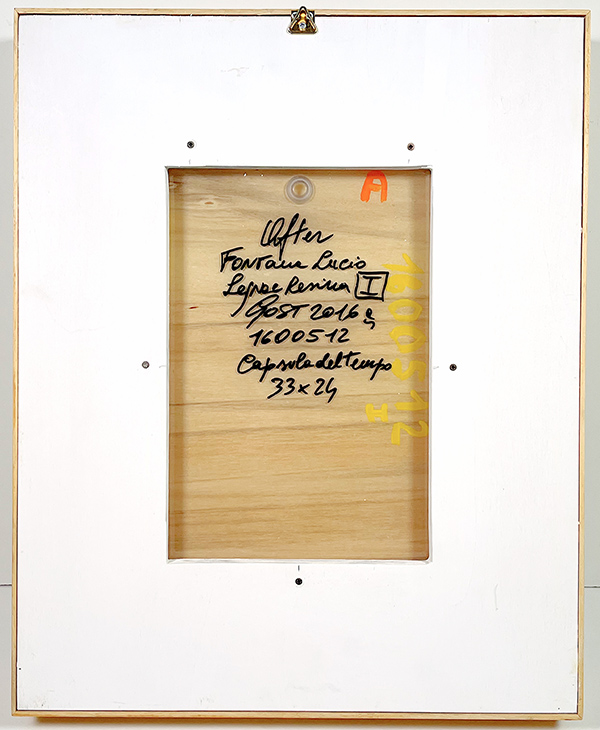 A
After
Fontana Lucio
Legno e Resina I
GOST 2016
1600512
Capsula del tempo
33x24
1600512
II